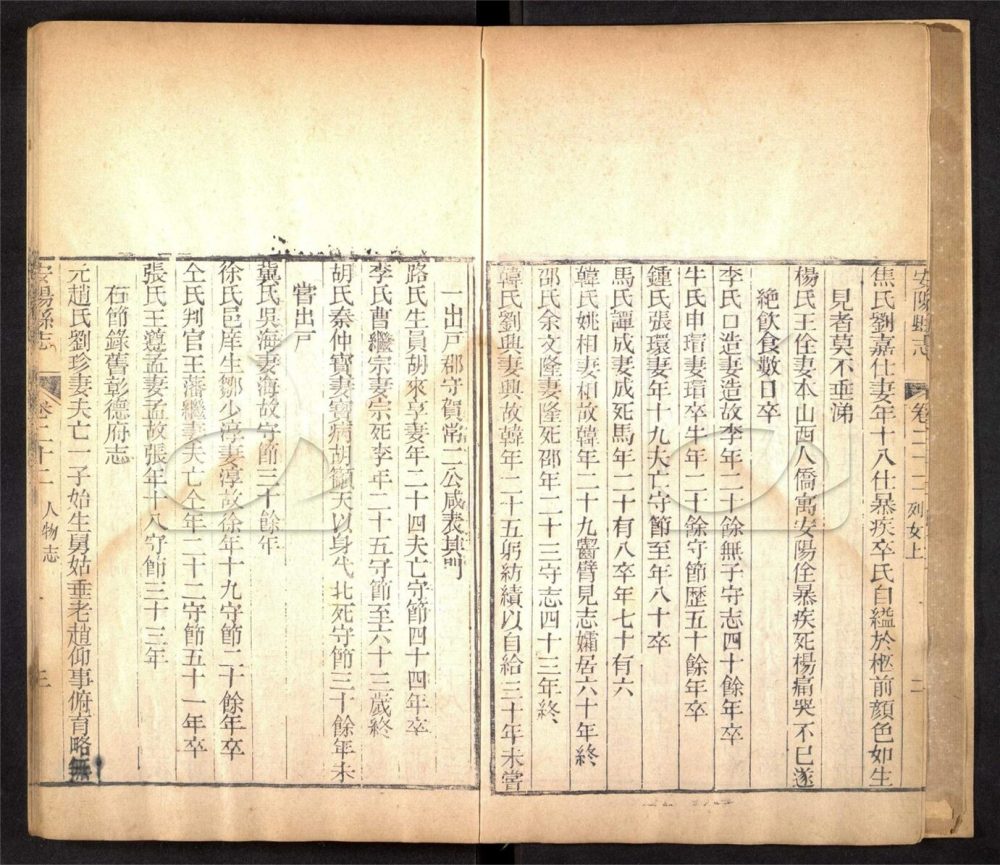 安陽縣志 卷二十二 列女上 二
焦氏劉嘉仕妻年十八仕暴疾卒氏自縊於柩前顏色如生
見者莫不垂涕
楊氏王佺妻本山西人僑寓安陽佺暴疾死楊痛哭不已遂
絶飲食數日卒
李氏口造妻造故李年二十餘無子守志四十餘年卒
牛氏申瑁妻瑁卒牛年二十餘守節歷五十餘年卒
鍾氏張環妻年十九夫亡守節至年八十卒
馬氏譚成妻成死馬年二十有八卒年七十有六
韓氏姚相妻相故韓年二十九齧臂見志孀居六十年終
邵氏余文隆妻隆死邵年二十三守志四十三年終
韓氏劉興妻興故韓年二十五躬紡績以自給三十年未嘗
一出戸郡守賀常二公咸表其門
路氏生員胡來享妻年二十四夫亡守節四十四年卒
李氏曹繼宗妻宗死李年二十五守節至六十三歲終
胡氏秦仲寶妻寶病胡籲天以身代北死守節三十餘年未
嘗出戸
冀氏吳海妻海故守節三十餘年
徐氏邑庠生鄒少淳妻淳故徐年十九守節二十餘年卒
仝氏判官王藩繼妻夫亡仝年二十二守節五十一年卒
張氏王遵孟妻孟故張年十八守節三十三年
右節錄舊彰德府志
元趙氏劉珍妻夫亡一子始生舅姑垂老趙仰事俯育略無
安陽縣志 卷二十二 人物志 三